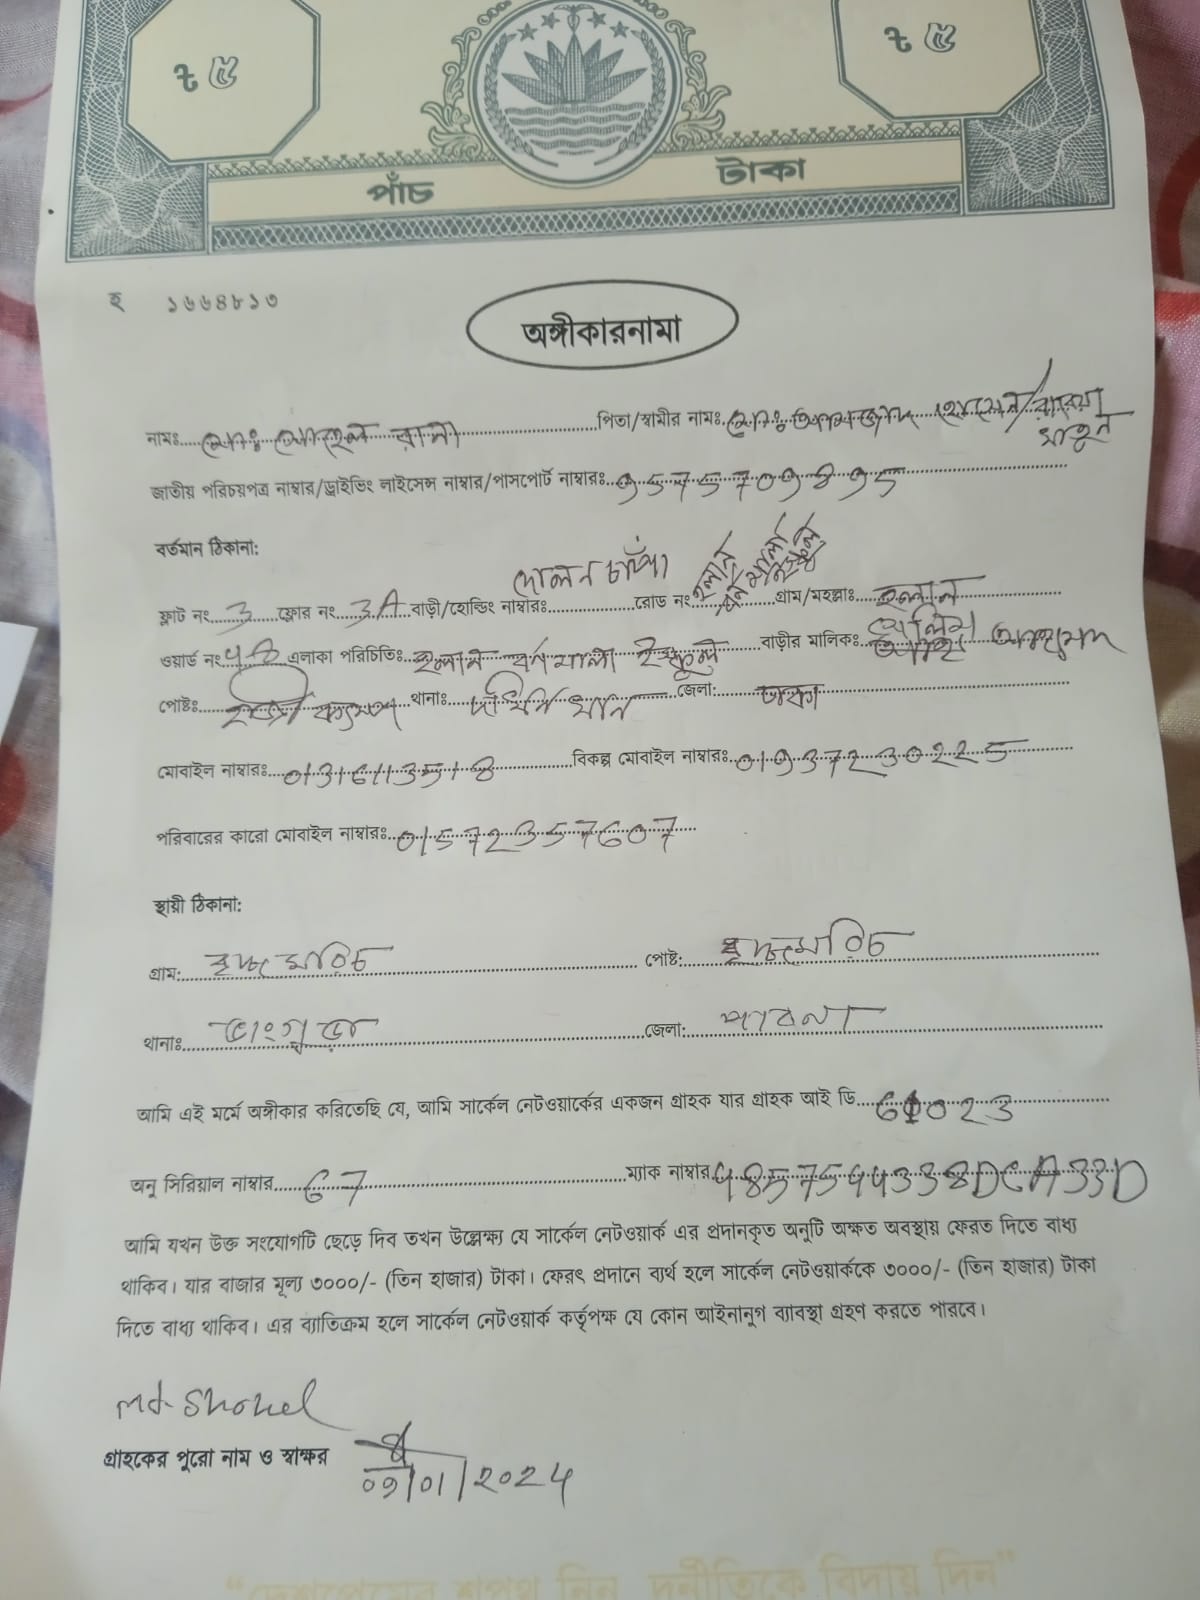 ৳ ৫ ৳ ৫
পাঁচ টাকা
হ ১৬৬৪৮১৩
অঙ্গীকারনামা
নামঃ মোঃ সোহেল রানা পিতা/স্বামীর নামঃ মোঃ আমজাদ হোসেন/রাবেয়া খাতুন
জাতীয় পরিচয়পত্র নাম্বার/ড্রাইভিং লাইসেন্স নাম্বার/পাসপোর্ট নাম্বারঃ
বর্তমান ঠিকানা:
ফ্লাট নং 3 ফ্লোর নং 3A বাড়ী/হোল্ডিং নাম্বারঃ দোলন চাঁপা রোড নং গ্রাম/মহল্লাঃ হলান
ওয়ার্ড নং এলাকা পরিচিতিঃ হলান বর্ণমালা ইস্কুল বাড়ীর মালিকঃ আহমেদ
পোষ্টঃ থানাঃ দক্ষিণ খান জেলা: ঢাকা
মোবাইল নাম্বারঃ বিকল্প মোবাইল নাম্বারঃ
পরিবারের কারো মোবাইল নাম্বারঃ 01572357607
স্থায়ী ঠিকানা:
গ্রাম: বৃদ্ধমরিচ পোষ্ট: বৃদ্ধমরিচ
থানাঃ ভাংগুড়া জেলা: পাবনা
আমি এই মর্মে অঙ্গীকার করিতেছি যে, আমি সার্কেল নেটওয়ার্কের একজন গ্রাহক যার গ্রাহক আই ডি 61023
অনু সিরিয়াল নাম্বার 67 ম্যাক নাম্বার 4857544338DCA33D
আমি যখন উক্ত সংযোগটি ছেড়ে দিব তখন উল্লেক্ষ্য যে সার্কেল নেটওয়ার্ক এর প্রদানকৃত অনুটি অক্ষত অবস্থায় ফেরত দিতে বাধ্য
থাকিব। যার বাজার মূল্য ৩০০০/- (তিন হাজার) টাকা। ফেরৎ প্রদানে ব্যর্থ হলে সার্কেল নেটওয়ার্ককে ৩০০০/- (তিন হাজার) টাকা
দিতে বাধ্য থাকিব। এর ব্যাতিক্রম হলে সার্কেল নেটওয়ার্ক কর্তৃপক্ষ যে কোন আইনানুগ ব্যাবস্থা গ্রহণ করতে পারবে।
Md. Shohel
গ্রাহকের পুরো নাম ও স্বাক্ষর
09/01/2024
“দেশপ্রেমের শপথ নিন, দুর্নীতিকে বিদায় দিন”